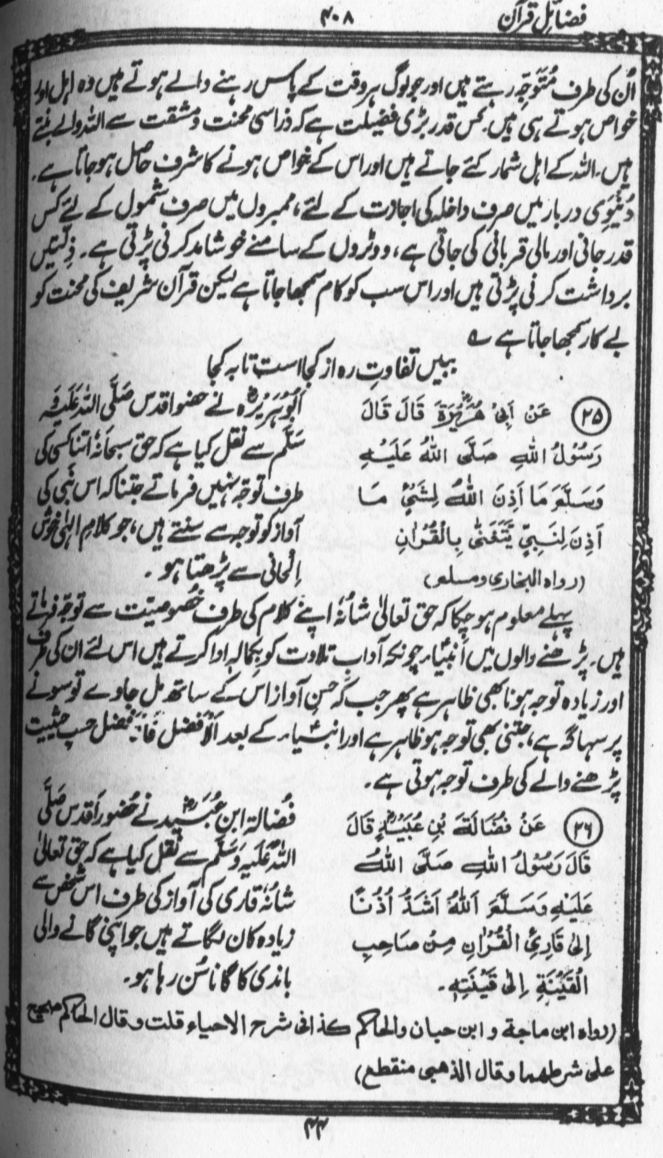 فضائل قرآن
۴۰۸
اُن کی طرف مُتوَجّہ رہتے ہیں اور جو لوگ ہر وقت کے پاس رہنے والے ہوتے ہیں وہ اہل اور
خواص ہوتے ہی ہیں۔ کس قدر بڑی فضیلت ہے کہ ذرا سی محنت و مشقت سے اللہ والے بنتے
ہیں۔ اللہ کے اہل شمار کئے جاتے ہیں اور اس کے خواص ہونے کا شرف حاصل ہو جاتا ہے۔
دُنیَوی دربار میں صرف داخلہ کی اجازت کے لئے، ممبروں میں صرف شمول کے لئے کس
قدر جانی اور مالی قربانی کی جاتی ہے، ووٹروں کے سامنے خوشامد کرنی پڑتی ہے۔ ذِلّتیں
برداشت کرنی پڑتی ہیں اور اس سب کو کام سمجھا جاتا ہے لیکن قرآن شریف کی محنت کو
بے کار سمجھا جاتا ہے ؎
ببیں تفاوتِ رہ از کجا است تا بہ کجا
(۲۵) عَنْ اَبِیْ هُرَيْرَةَ رض قَالَ قَالَ
رَسُوْلُ اللهِ صَلَّى اللهُ عَلَيْهِ
وَسَلَّمَ مَا اَذِنَ اللهُ لِشَیْءٍ مَا
اَذِنَ لِنَبِیٍّ يَّتَغَنّٰى بِالْقُرْاٰنِ
(رواه البخاری ومسلم)
اَبُوہُرَیرہؓ نے حضور اقدس صَلَّی اللہُ عَلَیہِ
سَلَّم سے نقل کیا ہے کہ حق سبحانہٗ اتنا کسی کی
طرف توجہ نہیں فرماتے جتنا کہ اس نَبی کی
آواز کو توجہ سے سنتے ہیں، جو کلامِ الٰہی خوش
اِلحانی سے پڑھتا ہو۔
پہلے معلوم ہو چکا کہ حق تعالیٰ شانُہٗ اپنے کلام کی طرف خُصوصیّت سے توجہ فرماتے
ہیں۔ پڑھنے والوں میں اَنبِیَاء چونکہ آدابِ تلاوت کو بِکمالہٖ ادا کرتے ہیں اس لئے ان کی طرف
اور زیادہ توجہ ہونا بھی ظاہر ہے پھر جب کہ حُسنِ آواز اس کے ساتھ مل جاوے تو سونے
پر سہاگہ ہے، جتنی بھی توجہ ہو ظاہر ہے اور انبیاء کے بعد اَلْاَفْضَل فَالْاَفْضَل حسبِ حیثیت
پڑھنے والے کی طرف توجہ ہوتی ہے۔
(۲۶) عَنْ فُضَالَةَ بْنِ عُبَيْدٍ رض قَالَ
قَالَ رَسُوْلُ اللهِ صَلَّى اللهُ
عَلَيْهِ وَسَلَّمَ اَللهُ اَشَدُّ اُذُنًا
اِلٰى قَارِئِ الْقُرْاٰنِ مِنْ صَاحِبِ
الْقَيْنَةِ اِلٰى قَيْنَتِهٖ۔
فُضالہ ابنِ عُبَیدؓ نے حضورِ اقدس صَلَّی
اللہُ عَلَیہِ وَسَلَّم سے نقل کیا ہے کہ حق تعالیٰ
شانُہٗ قاری کی آواز کی طرف اس شخص سے
زیادہ کان لگاتے ہیں جو اپنی گانے والی
باندی کا گانا سُن رہا ہو۔
(رواه ابن ماجة و ابن حبان والحاکم کذا فی شرح الاحیاء قلت وقال الحاکم صحیح
علی شرطهما وقال الذهبی منقطع)
۴۴